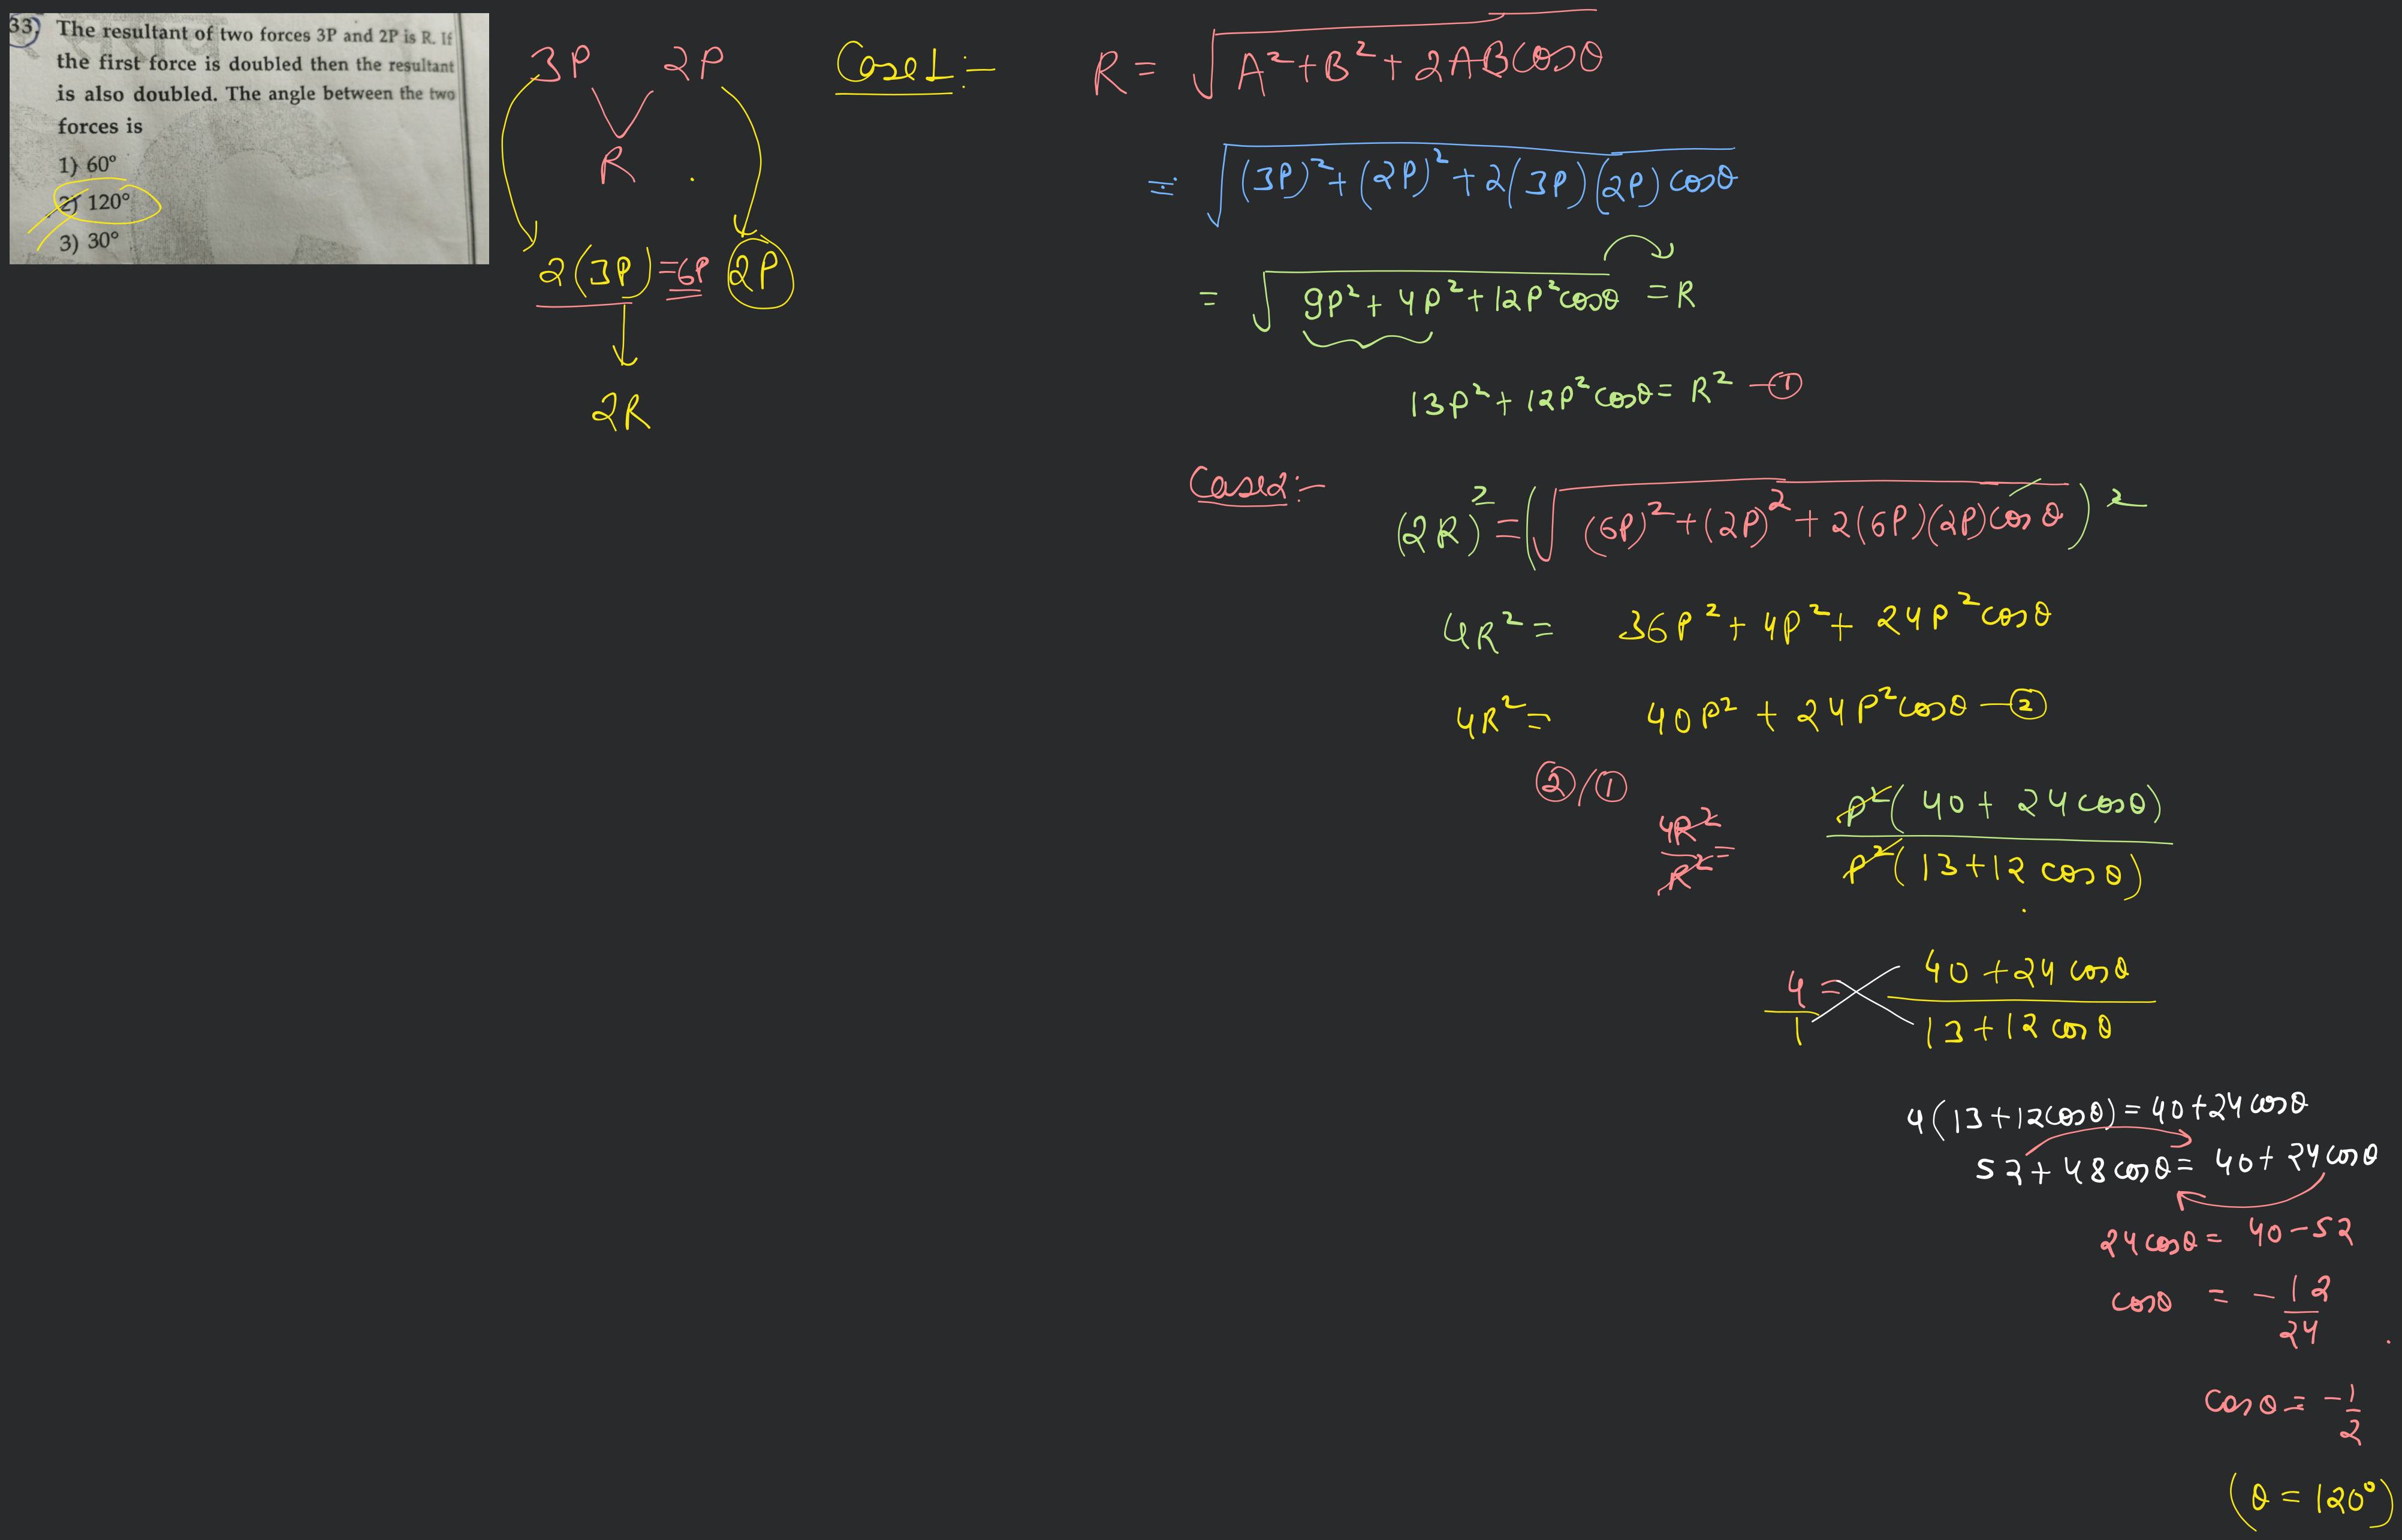 33) The resultant of two forces 3P and 2P is R. If
the first force is doubled then the resultant
is also doubled. The angle between the two
forces is
1) 60°
2) 120°
3) 30°
3P 2P
R
2(3P) = 6P 2P
2R
Case1:-
R = √A² + B² + 2ABcosθ
= √(3P)² + (2P)² + 2(3P)(2P) cosθ
= √9P² + 4P² + 12P²cosθ = R
13P² + 12P²cosθ = R² —①
Case2:-
(2R)² = (√(6P)² + (2P)² + 2(6P)(2P)cosθ)²
4R² = 36P² + 4P² + 24P²cosθ
4R² = 40P² + 24P²cosθ —②
②/①
4R²/R² = P²(40 + 24cosθ)/P²(13 + 12cosθ)
4/1 = 40 + 24cosθ/13 + 12cosθ
4(13 + 12cosθ) = 40 + 24cosθ
52 + 48cosθ = 40 + 24cosθ
24cosθ = 40 - 52
cosθ = -12/24
cosθ = -1/2
(θ = 120°)